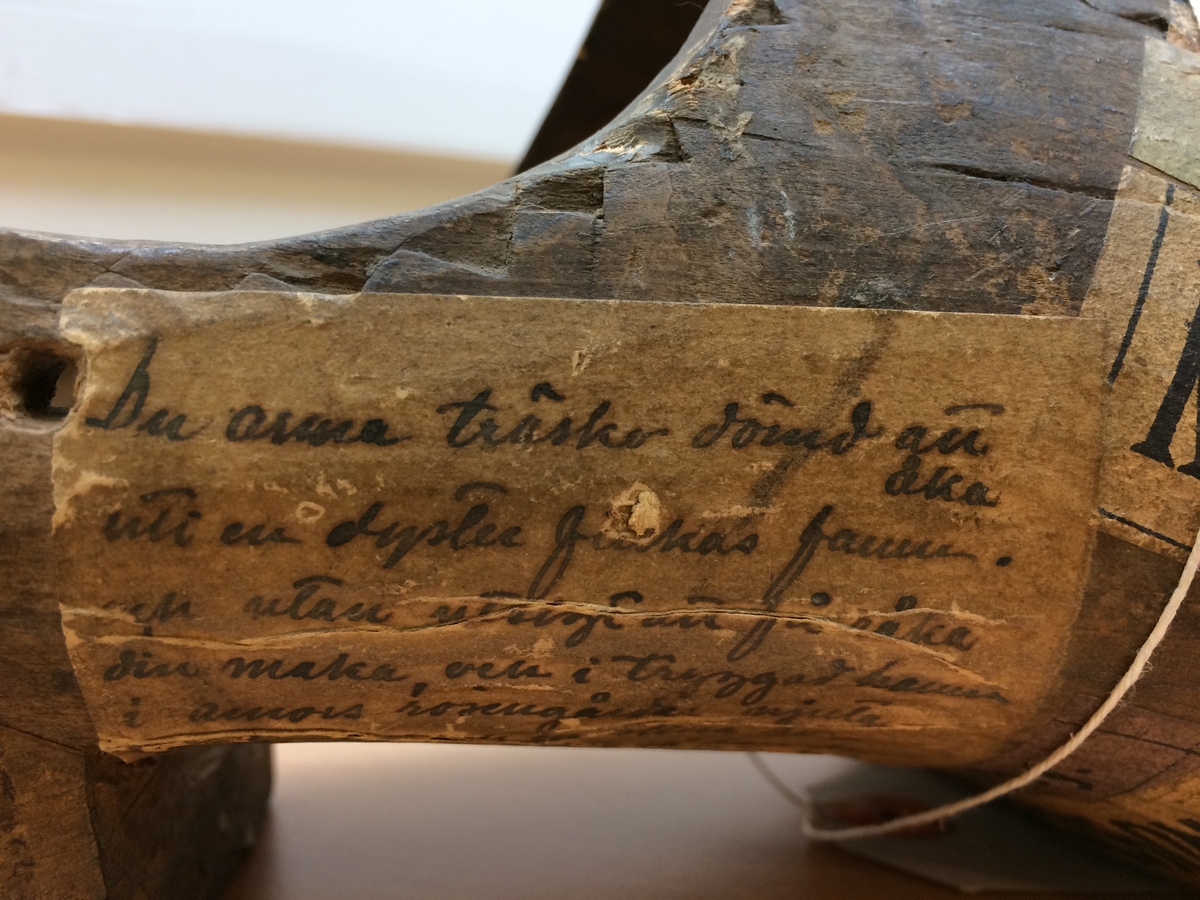 Du arma träsko dömd att
åka
uti en dyster finkas famn.
och utan utsigt att få råka
din maka, och i tryggad hamn
i amors rosengård njuta